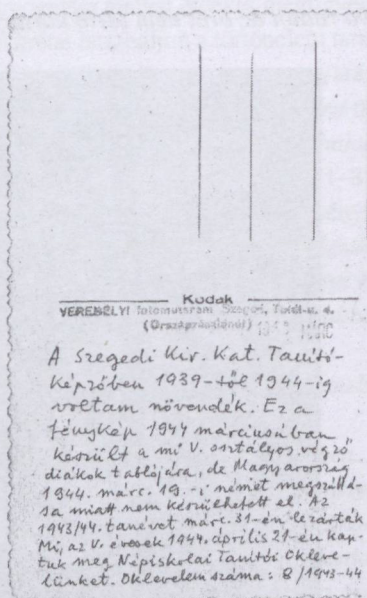 Kodak
VEREBÉLYI fotomutsrám Szeged, Toldi-u. 4.
A Szegedi Kir. Kat. Tanító-
képzőben 1939-től 1944-ig
voltam növendék. Ez a
fénykép 1944 márciusában
készült a mi V. osztályos "végző"
diákok tablójára, de Magyarország
1944. márc. 19. -i német megszállá-
sa miatt nem készülhetett el. Az
1943/44. tanévet márc. 31-én lezárták
Mi, az V. évesek 1944. április 21-én kap-
tuk meg Népiskolai Tanítói Okleve-
lünket. Oklevelem száma: 8/1943-44